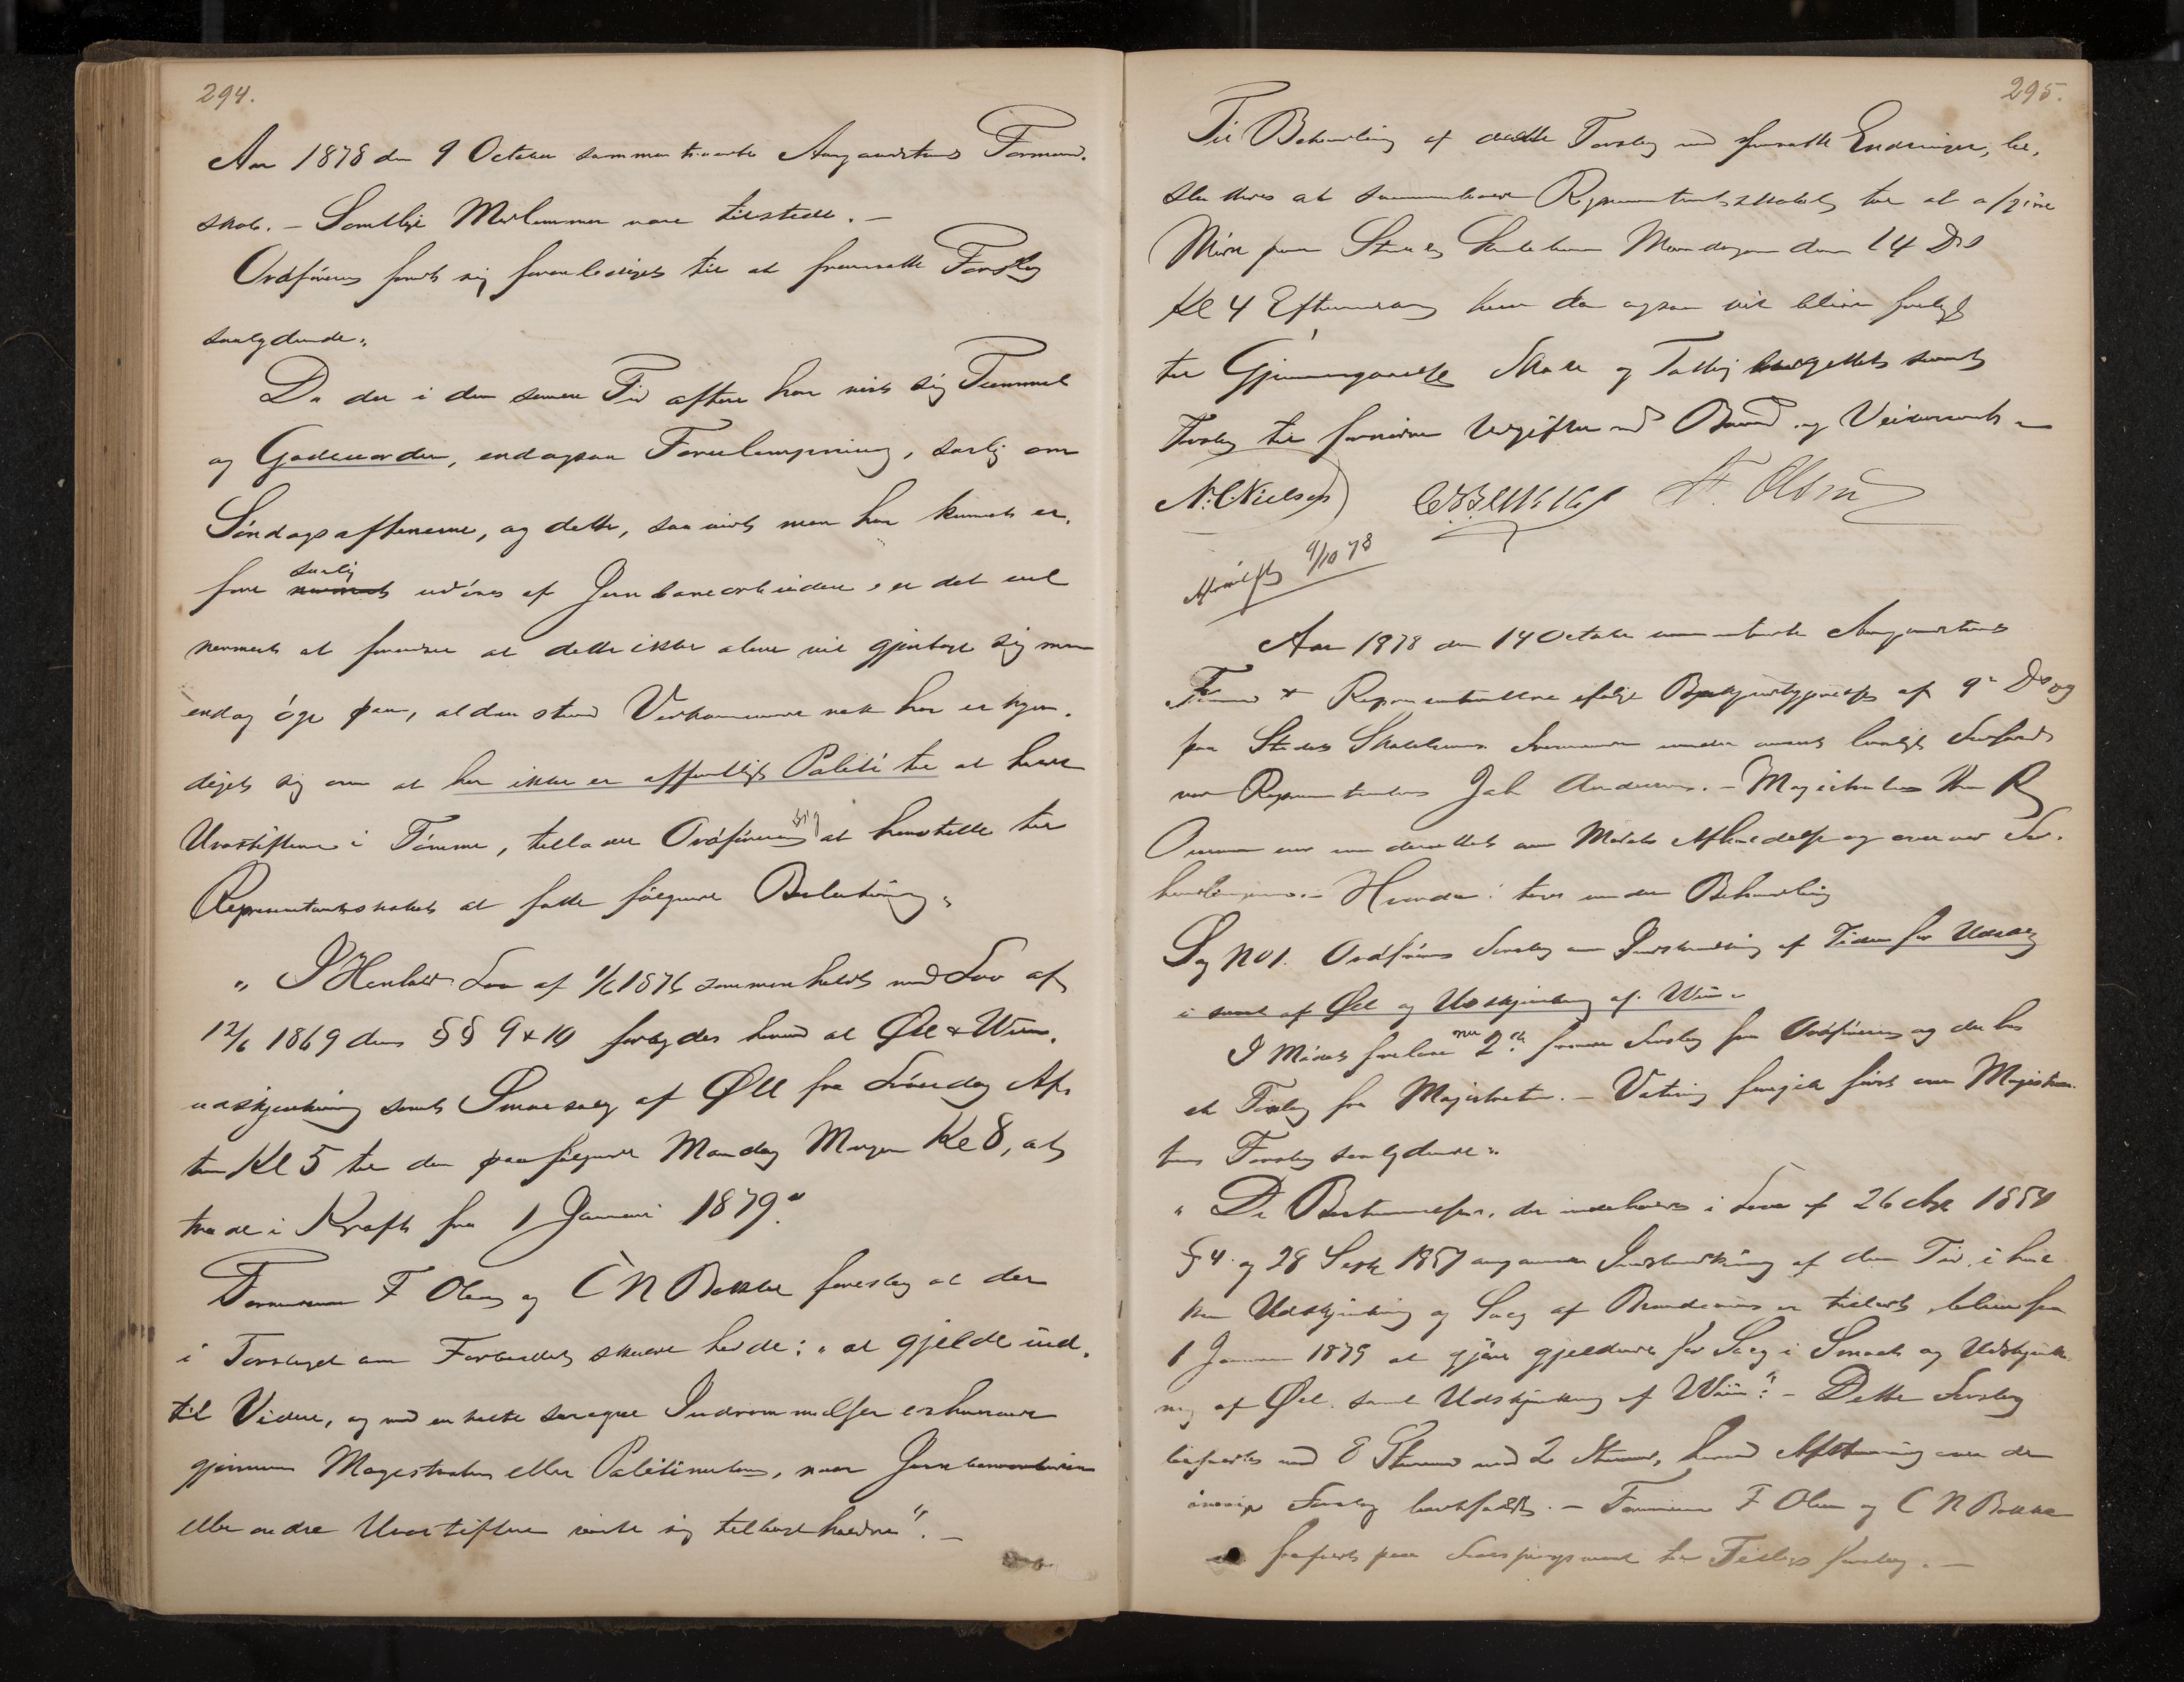 294.
Aar 1878 den 9 October sammentraadte Aasgaardstrands Formand-
skab. – Samtlige Medlemmer vare tilstede. –
Ordføreren fandt sig foranlediget til at fremsætte Forslag
saalydende:
Da der i den senere Tid oftere har vist sig Tummel
og Gadeuorden, endogsaa Forulempning, særlig om
Søndagsaftenerne, og dette, saavidt man har kunnet er-
fare særlig udøves af Jernbanearbeidere, er det vel
nærmest at formode at dette ikke alene vil gjentage sig men
endog øges paa, aldenstund Vedkommende nok har erkyn-
diget sig om at her ikke er offentligt Politi til at have
Urostiftere i Tømme, tillader Ordføreren sig at henstille til
Repræsentantskabet at fatte følgende Beslutning:
„I Henhold Lov af 1/6 1876 sammenholdt med Lov af
12/6 1869 dens §§ 9 & 10 forbydes herved at Øl & Viin-
udskjænkning samt Smaasalg af Øll fra Søndag Af-
ten Kl 5 til den paafølgende Mandag Morgen Kl 8, at
træde i Kraft fra 1 Januar 1879."
Formændene F Olsen og C N Bakke foreslog at der
i Forslaget om Forbudet skulde hedde: „at gjelde ind-
til Videre, og med enkelte særegne Indrømmelser erhvervede
gjennem Magistraten eller Politimesteren, naar Jernbanearbeidere
eller andre Urostiftere maatte sig tilbageholde". –
295.
Til Behandling af dette Forslag med foreslaaede Endringer, be-
sluttedes at sammenkalde Repræsentantskabet til at afgive
Møde paa Stedets Skolehuus Mandagen den 14 Ds
Kl 4 Eftermiddag hvor da ogsaa vil blive forelagt
til Gjennemgaaelse Skole og Fattig budgettet samt
Forslag til fornødne Udgifter ved Brand og Veivæsenet –
N. C. Nielsen C N Bakke F. Olsen
Afskrift 9/10 78
Aar 1878 den 14 October sammentraadte Aasgaardstrands
Formænd & Repræsentantere ifølge Bekjendtgjørelse af 9de Ds og
paa Stedets Skolehuus. Fraværende uden anmeldt lovligt Forfald
var Repræsentanten Jah Andersen. – Magistraten Hr R
Omsen var underrettet om Mødets Afholdelse og overvar For-
handlingerne. – Herunder toges under Behandling
Sag No 1. Ordførers Forslag om Indskrænkning af Tiden for Udsalg
i smaat af Øl og Udskjænkning af Viin –
I Mødet forelaae nu 2de Forslag fra Ordføreren og der hos
et Forslag fra Magistraten. – Votering foregik først over Magistra-
tens Forslag saalydende:
„De Bestemmelser, der indeholdes i Love af 26 Aug 1854
§ 4 og 28 Sept 1857 angaaende Indskrænkning af den Tid, i hvil-
ken Udskjænkning og Salg af Brændeviin er tilladt, bliver fra
1 Januar 1879 at gjøre gjeldende for Salg i Smaat og Udskjænk-
ning af Øl samt Udskjænkning af Viin". – Dette Forslag
bifaldtes med 8 Stemmer mod 2 Stemmer, hvorved Afstemning over de
øvrige Forslag bortfaldt. – Formændene F Olsen og C N Bakke